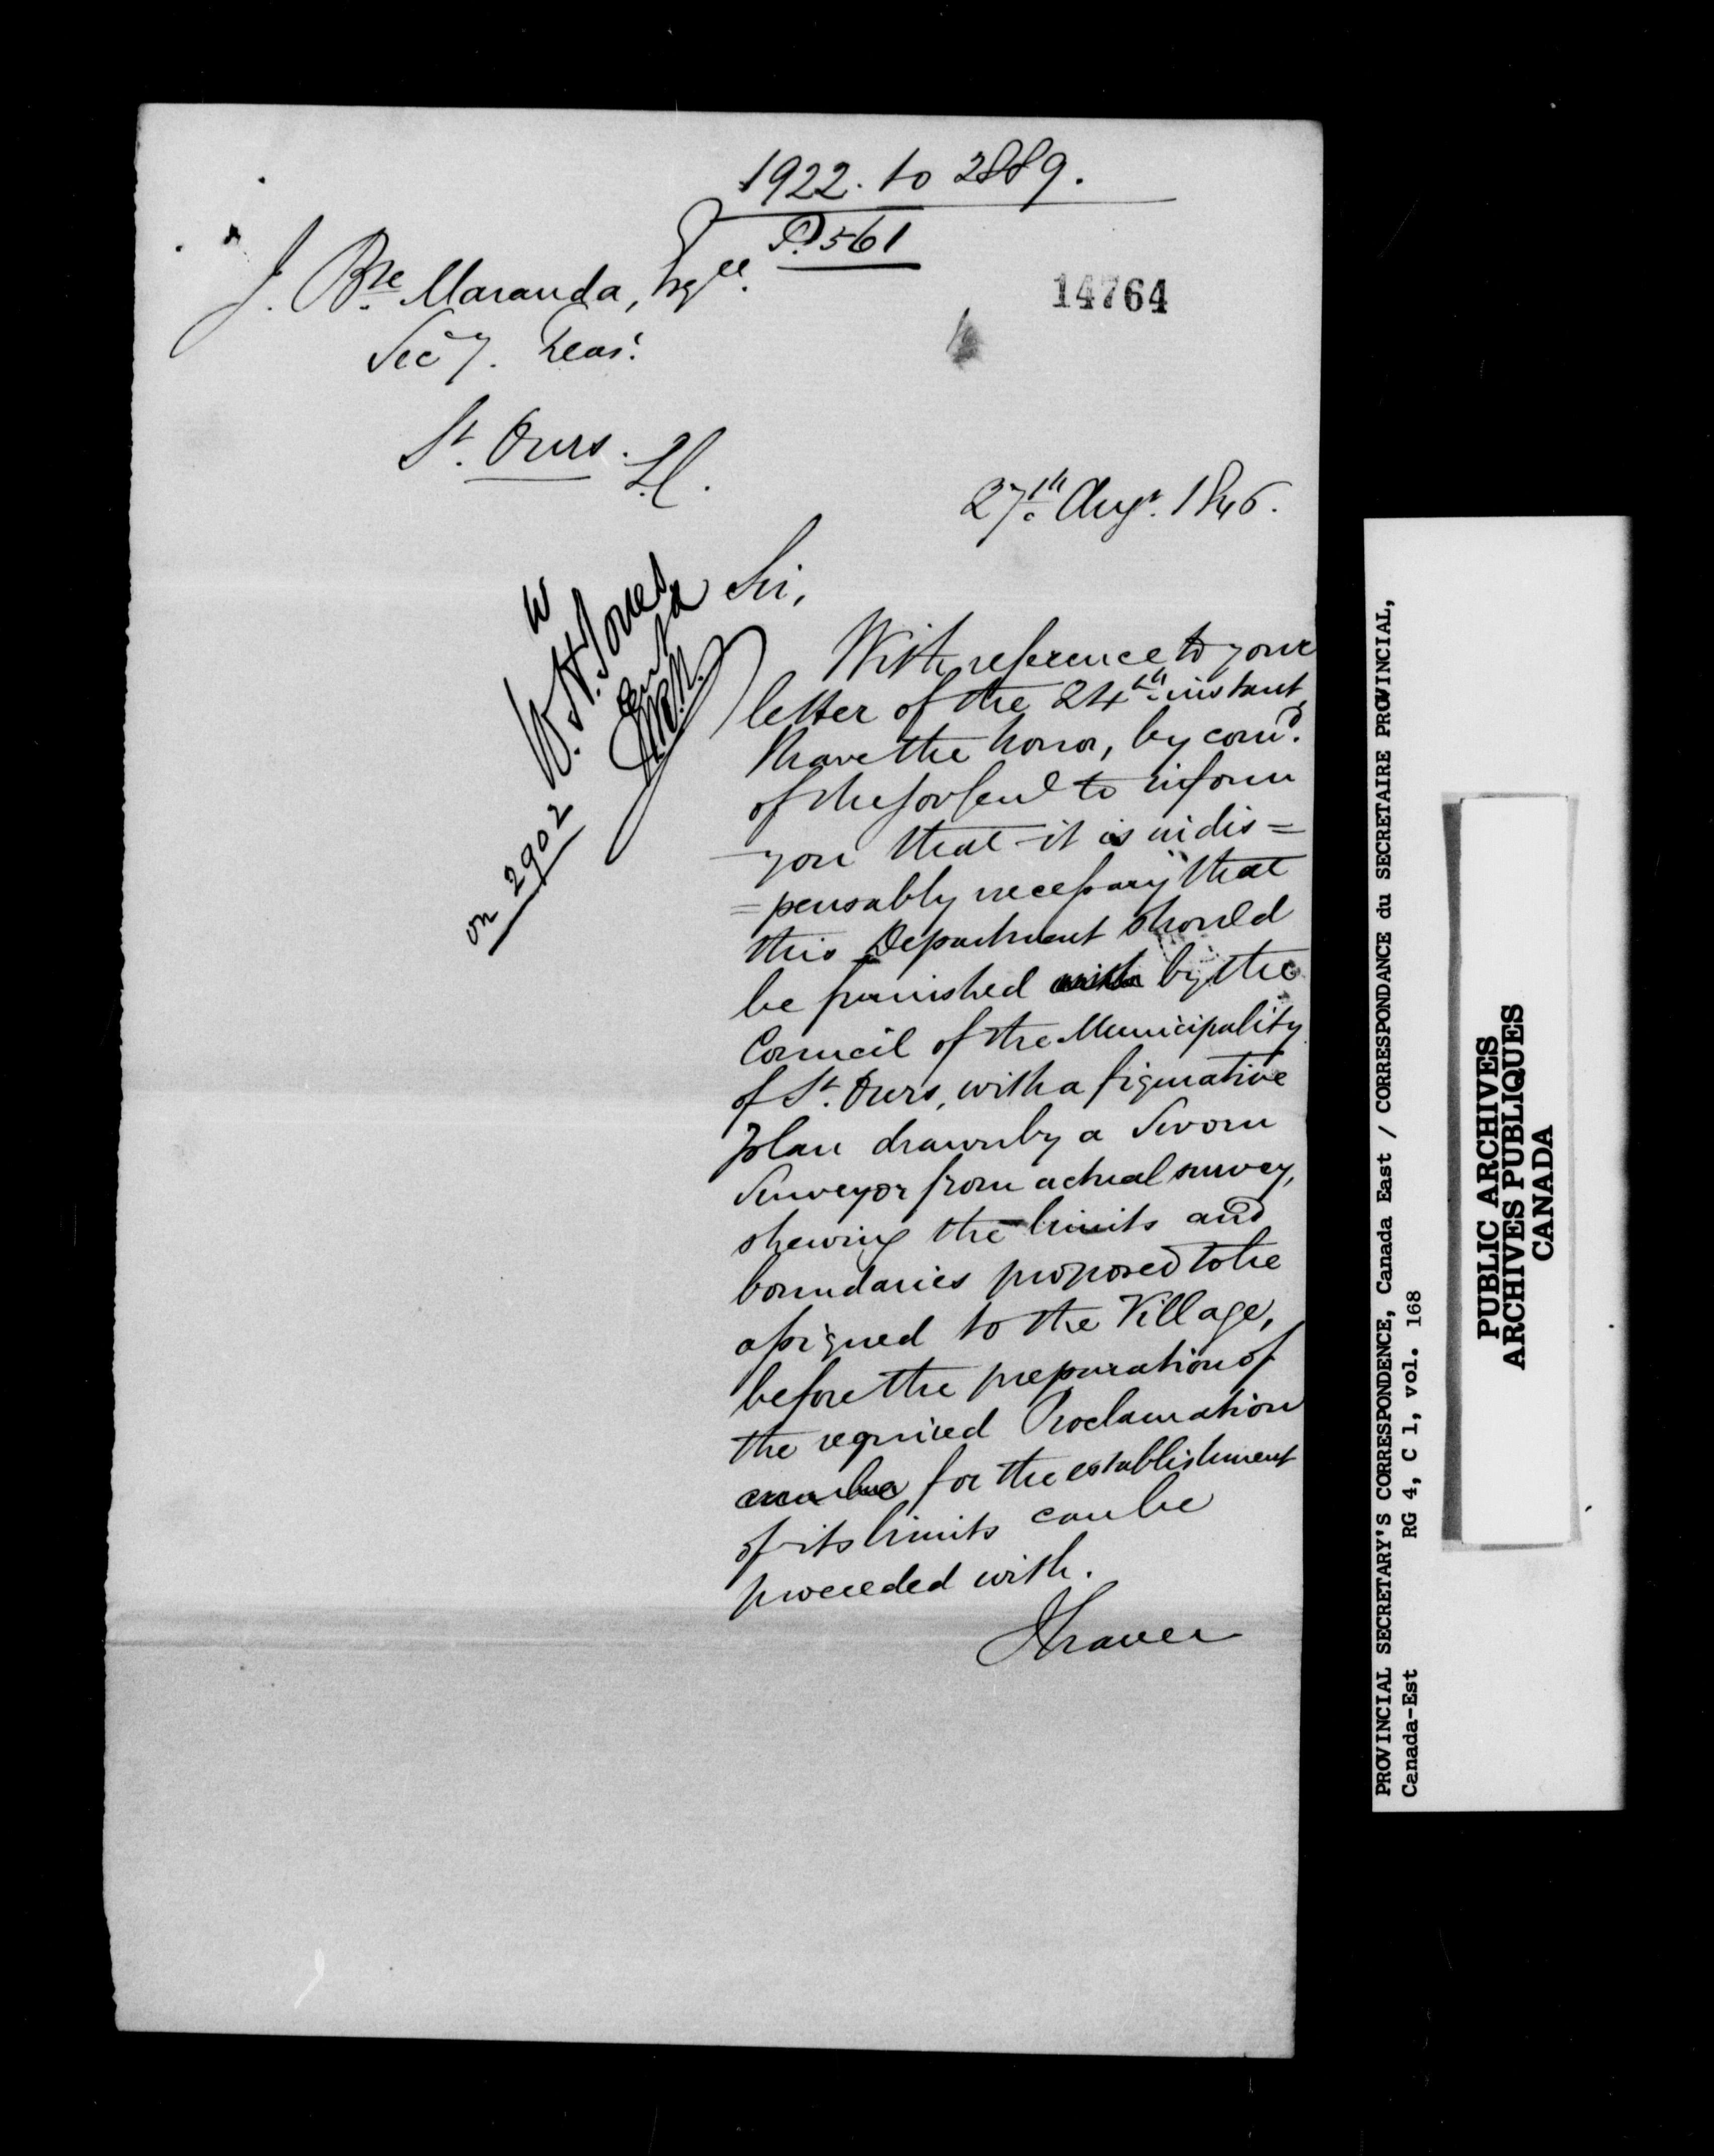 1922. to 2889.
P. 561
14764
J. Bte. Maranda, Esqre.
Secy. Treasr.
St. Ours.
27th. Augt. 1846.
W
W. H. Jones
on 2902
Sir,
With reference to your
letter of the 24th. instant,
I have the honor, by comd.
of the Govr Genl to inform
you that it is indis=
=pensably necessary that
this Department should
be furnished with by the
Council of the Municipality
of St. Ours, with a figurative
plan drawn by a Sworn
Surveyor from actual survey,
shewing the limits and
boundaries proposed to be
assigned to the Village,
before the preparation of
the required Proclamation
can be for the establishment
of its limits can be
proceeded with.
I have
PROVINCIAL SECRETARY'S CORRESPONDENCE, Canada East / CORRESPONDANCE du SECRETAIRE PROVINCIAL,
Canada-Est RG 4, C 1, vol. 168
PUBLIC ARCHIVES
ARCHIVES PUBLIQUES
CANADA